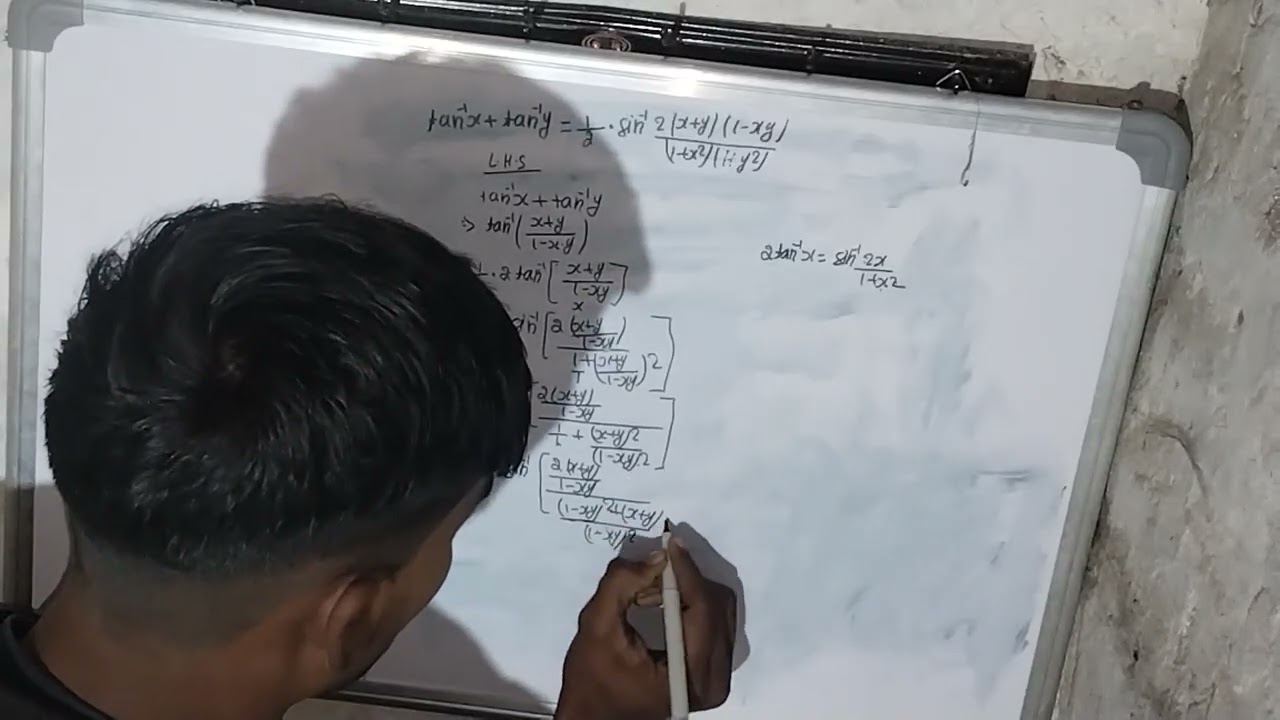 tan⁻¹x + tan⁻¹y = 1/2 · sin⁻¹ 2(x+y)(1-xy)/(1+x²)(1+y²)
L.H.S
tan⁻¹x + tan⁻¹y
=> tan⁻¹(x+y/1-x·y)
· 2tan⁻¹[x+y/1-xy]
x
sin⁻¹[2(x+y/1-xy)/1/1+(x+y/1-xy)²]
[2(x+y)/1-xy/1/1+(x+y)²/(1-xy)²]
[2(x+y)/1-xy/(1-xy)²+(x+y)/(1-xy)²
2tan⁻¹x = sin⁻¹ 2x/1+x²